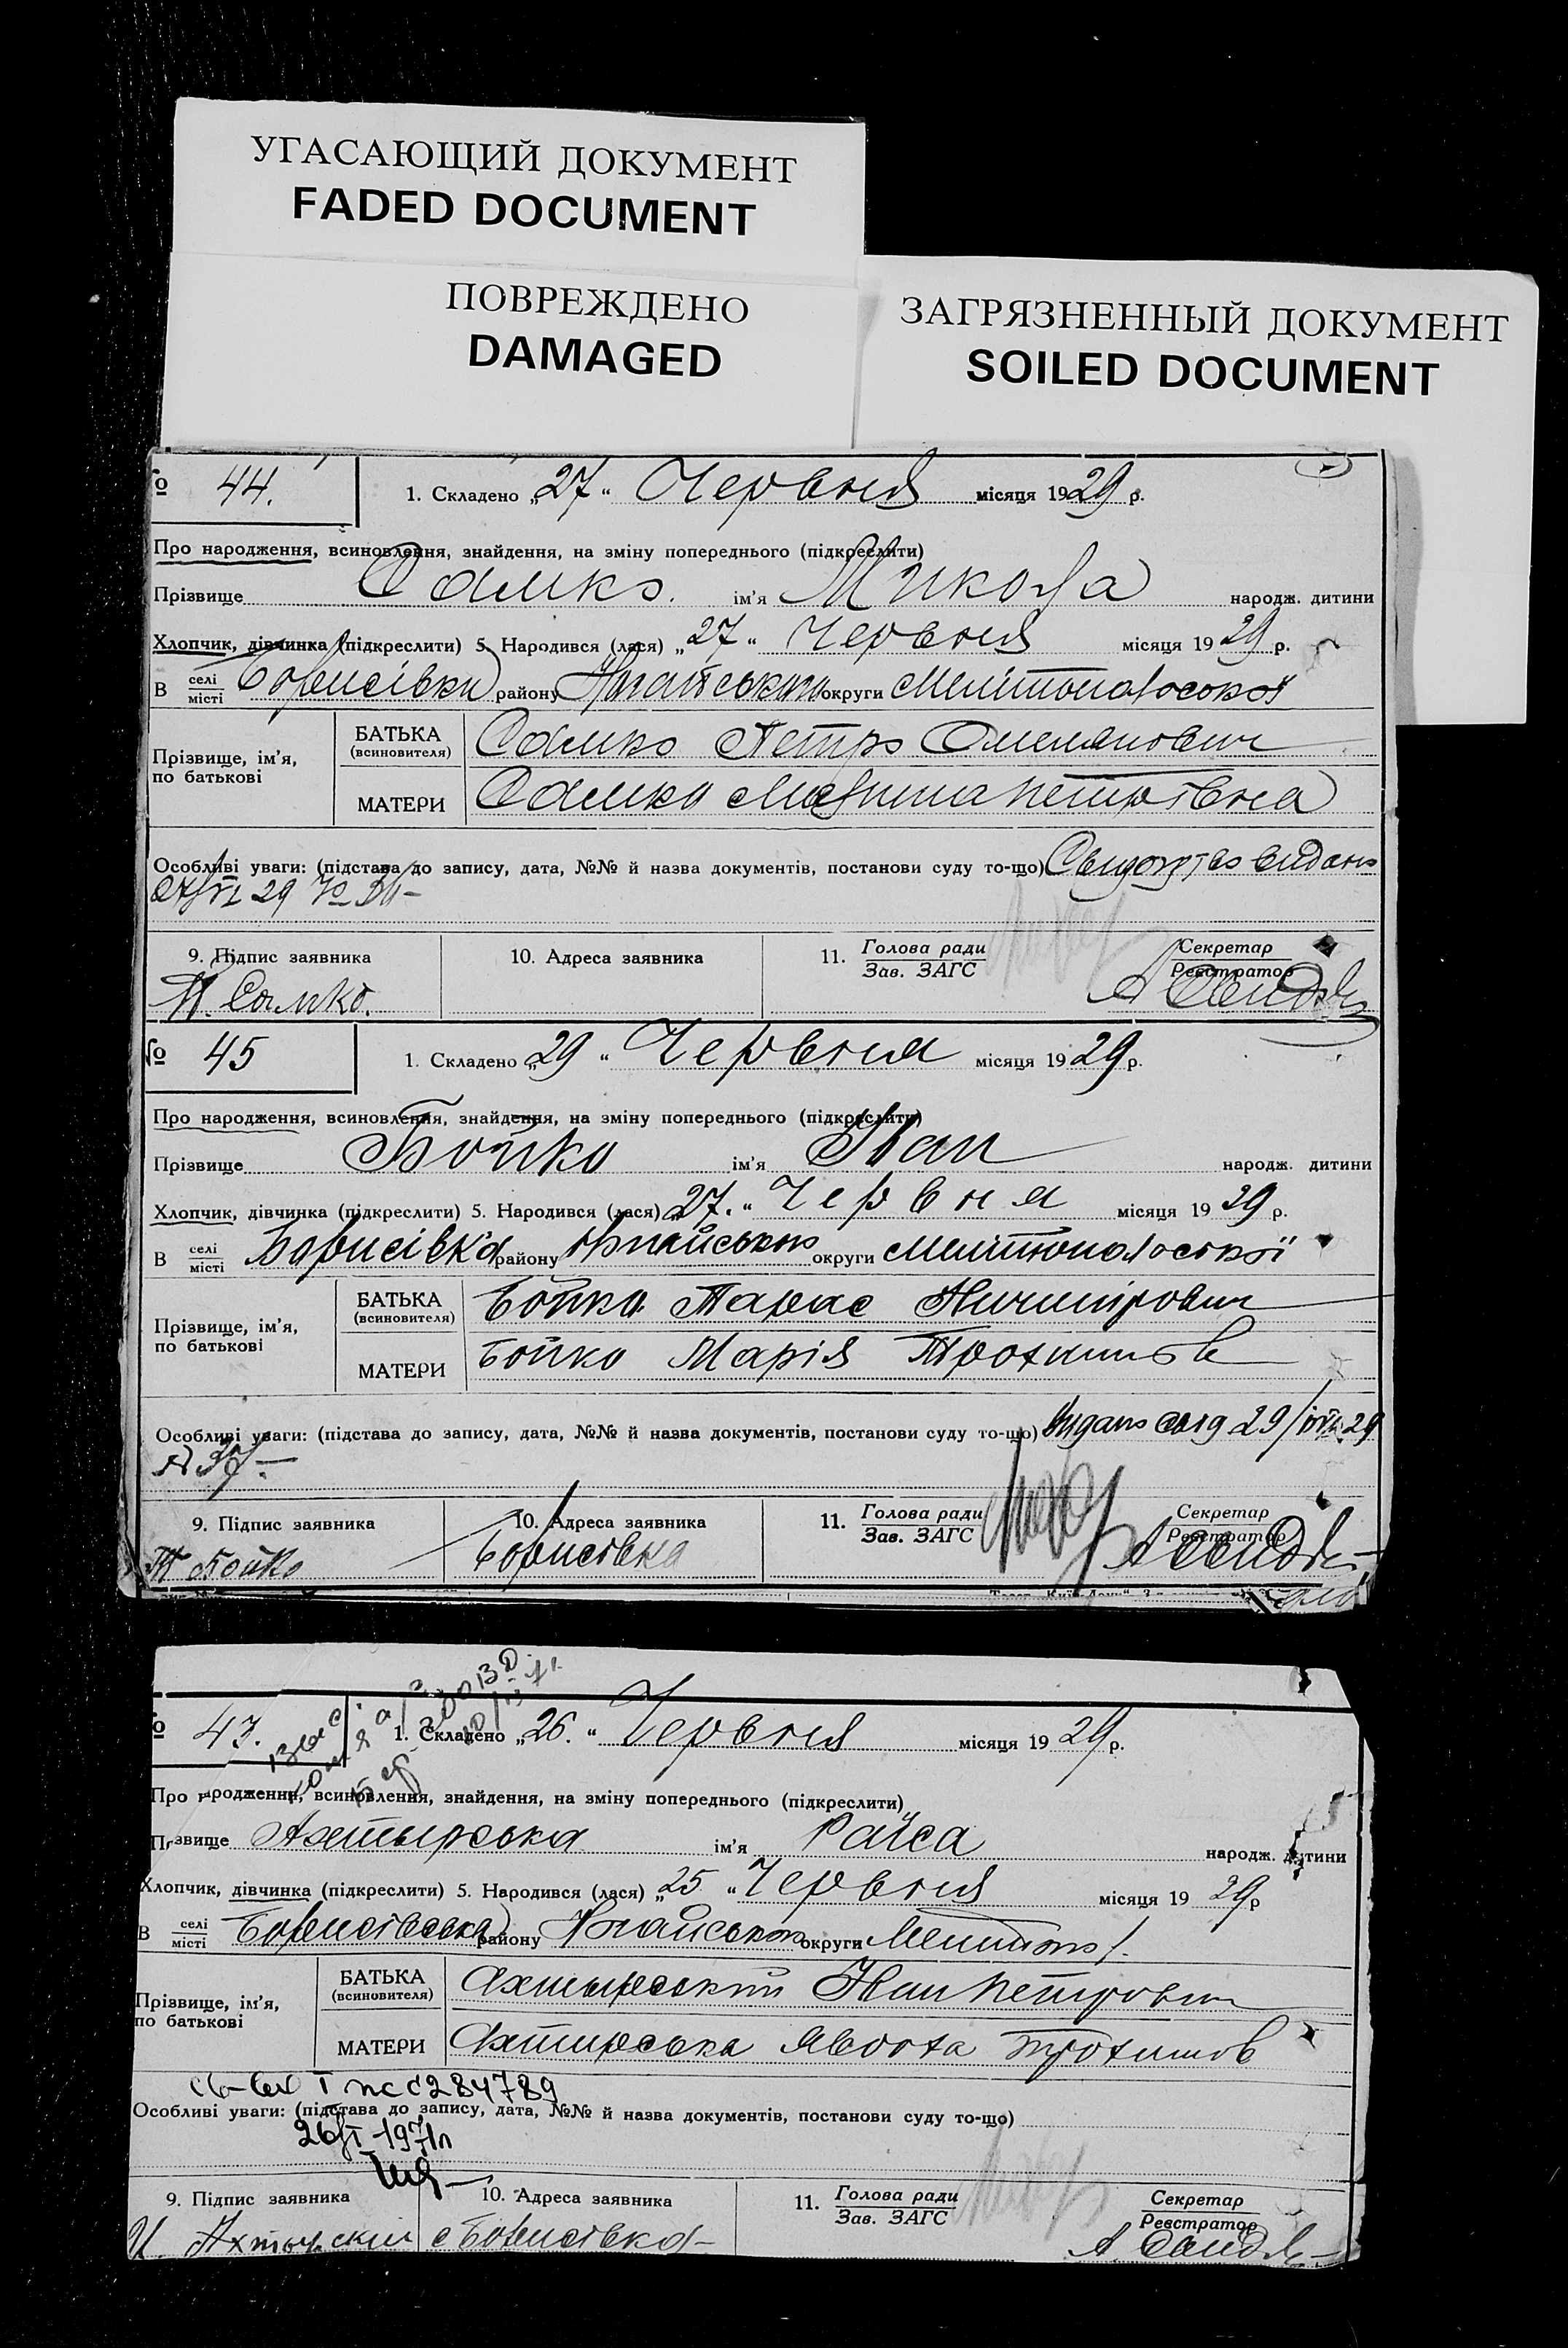 УГАСАЮЩИЙ ДОКУМЕНТ
FADED DOCUMENT
ПОВРЕЖДЕНО
DAMAGED
ЗАГРЯЗНЕННЫЙ ДОКУМЕНТ
SOILED DOCUMENT
№ 44. 1. Складено „27“ Червня місяця 1929 р.
Про народження, всиновлення, знайдення, на зміну попереднього (підкреслити)
Прізвище Самко. ім'я Микола народж. дитини
Хлопчик, дівчинка (підкреслити) 5. Народився (лася) „27“ Червня місяця 1929 р.
В селі/місті Борисівки району Ногайського округи Мелітопольської
Прізвище, ім'я, по батькові
БАТЬКА (всиновителя) Самко Петро Омелянович
МАТЕРИ Самко Петрівна
Особливі уваги: (підстава до запису, дата, №№ й назва документів, постанови суду то-що) Свидоцтво видано
27/VI 29 №
9. Підпис заявника 10. Адреса заявника 11. Голова ради/Зав. ЗАГС Секретар/Реєстратор
П. Самко.
№ 45 1. Складено „29“ Червня місяця 1929 р.
Про народження, всиновлення, знайдення, на зміну попереднього (підкреслити)
Прізвище Бойко ім'я Іван народж. дитини
Хлопчик, дівчинка (підкреслити) 5. Народився (лася) „27.“ Червня місяця 1929 р.
В селі/місті Борисівка району Ногайського округи Мелітопольської
Прізвище, ім'я, по батькові
БАТЬКА (всиновителя) Бойко Тарас Ничипірович
МАТЕРИ Бойко Марія Трохимів
Особливі уваги: (підстава до запису, дата, №№ й назва документів, постанови суду то-що) видано 29/VI 29
№ 37
9. Підпис заявника 10. Адреса заявника 11. Голова ради/Зав. ЗАГС Секретар/Реєстратор
Т Бойко Борисівка
№ 43. 1. Складено „26.“ Червня місяця 1929 р.
Про народження, всиновлення, знайдення, на зміну попереднього (підкреслити)
Прізвище Ахтырська ім'я Раїса народж. дитини
Хлопчик, дівчинка (підкреслити) 5. Народився (лася) „25“ Червня місяця 1929 р
В селі/місті району Ногайського округи Мелитоп.
Прізвище, ім'я, по батькові
БАТЬКА (всиновителя) Ахтырський Іван Петрович
МАТЕРИ Ахтирська Явдоха Трохимов
І 284789
Особливі уваги: (підстава до запису, дата, №№ й назва документів, постанови суду то-що)
1971
9. Підпис заявника 10. Адреса заявника 11. Голова ради/Зав. ЗАГС Секретар/Реєстратор
И Ахтырский с Борисівка